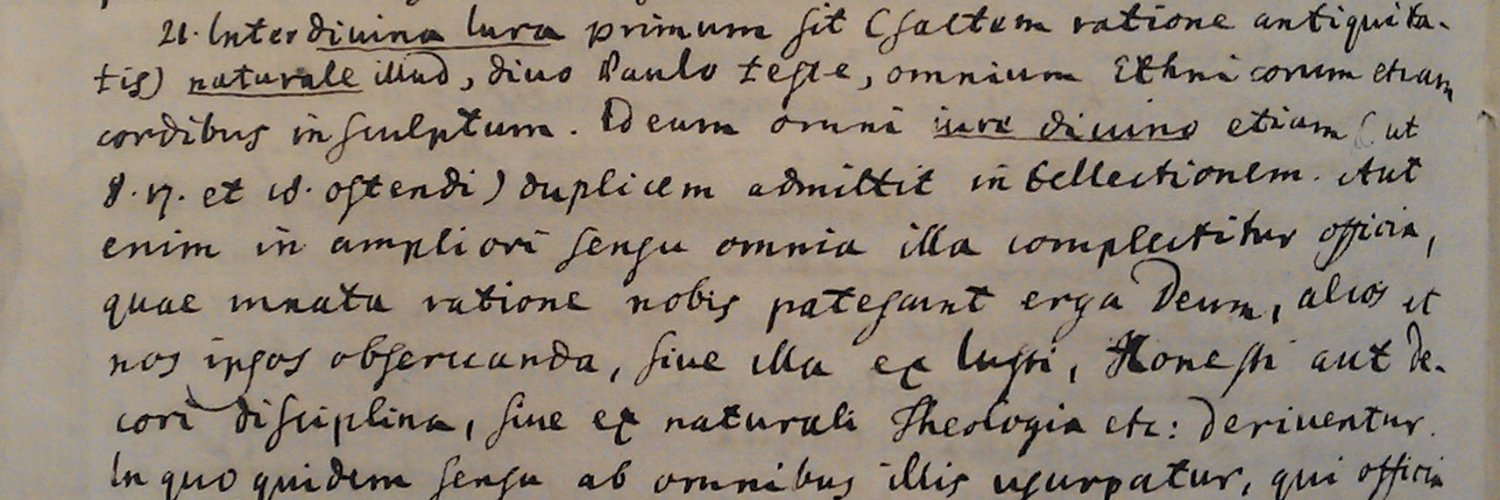 21. Inter divina Iura primum sit (saltem ratione antiquita-
tis) naturale illud, divo Paulo teste, omnium Ethnicorum etiam
cordibus insculptum. Id cum omni iure divino etiam (ut
§. 17. et 18. ostendi) duplicem admittit intellectionem. Aut
enim in ampliori sensu omnia illa complectitur officia,
quae innata ratione nobis patescunt erga Deum, alios et
nos ipsos observanda, sive illa ex Iusti, Honesti aut De-
cori disciplina, sive ex naturali Theologia etc: deriventur.
In quo quidem sensu ab omnibus illis usurpatur, qui officia